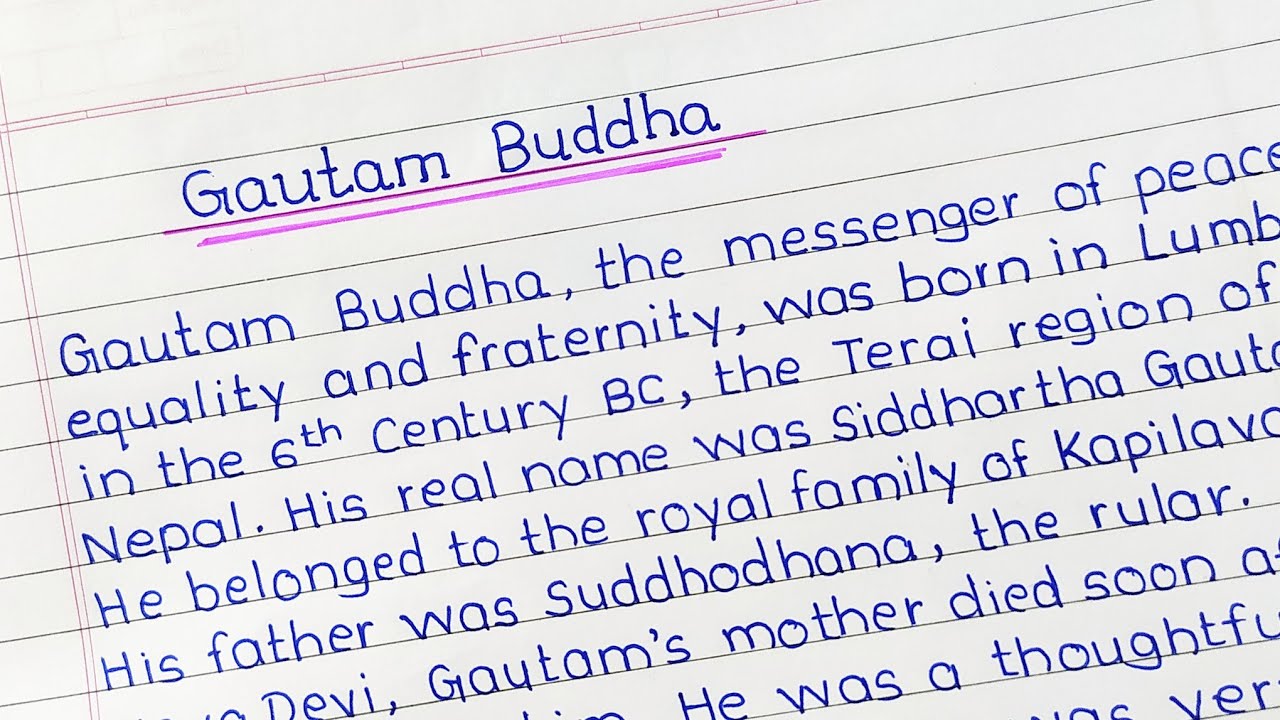 Gautam Buddha
Gautam Buddha, the messenger of peace
equality and fraternity, was born in Lumb
in the 6th Century BC, the Terai region of
Nepal. His real name was Siddhartha Gauta
He belonged to the royal family of Kapilava
His father was Suddhodhana, the rular.
Devi, Gautam's mother died soon af
He was a thoughtfu
was ver